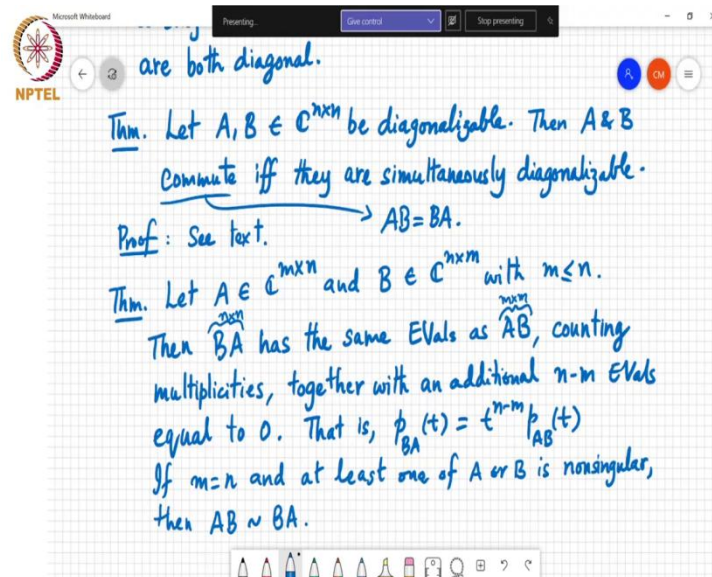 Microsoft Whiteboard
Presenting...
Give control
Stop presenting
NPTEL
CM
are both diagonal.
Thm. Let A, B ∈ ℂⁿˣⁿ be diagonalizable. Then A & B
commute iff they are simultaneously diagonalizable.
AB = BA.
Proof : See text.
Thm. Let A ∈ ℂᵐˣⁿ and B ∈ ℂⁿˣᵐ with m ≤ n.
n×n m×m
Then BA has the same EVals as AB, counting
multiplicities, together with an additional n-m EVals
equal to 0. That is, p_BA(t) = tⁿ⁻ᵐ p_AB(t)
If m=n and at least one of A or B is nonsingular,
then AB ~ BA.